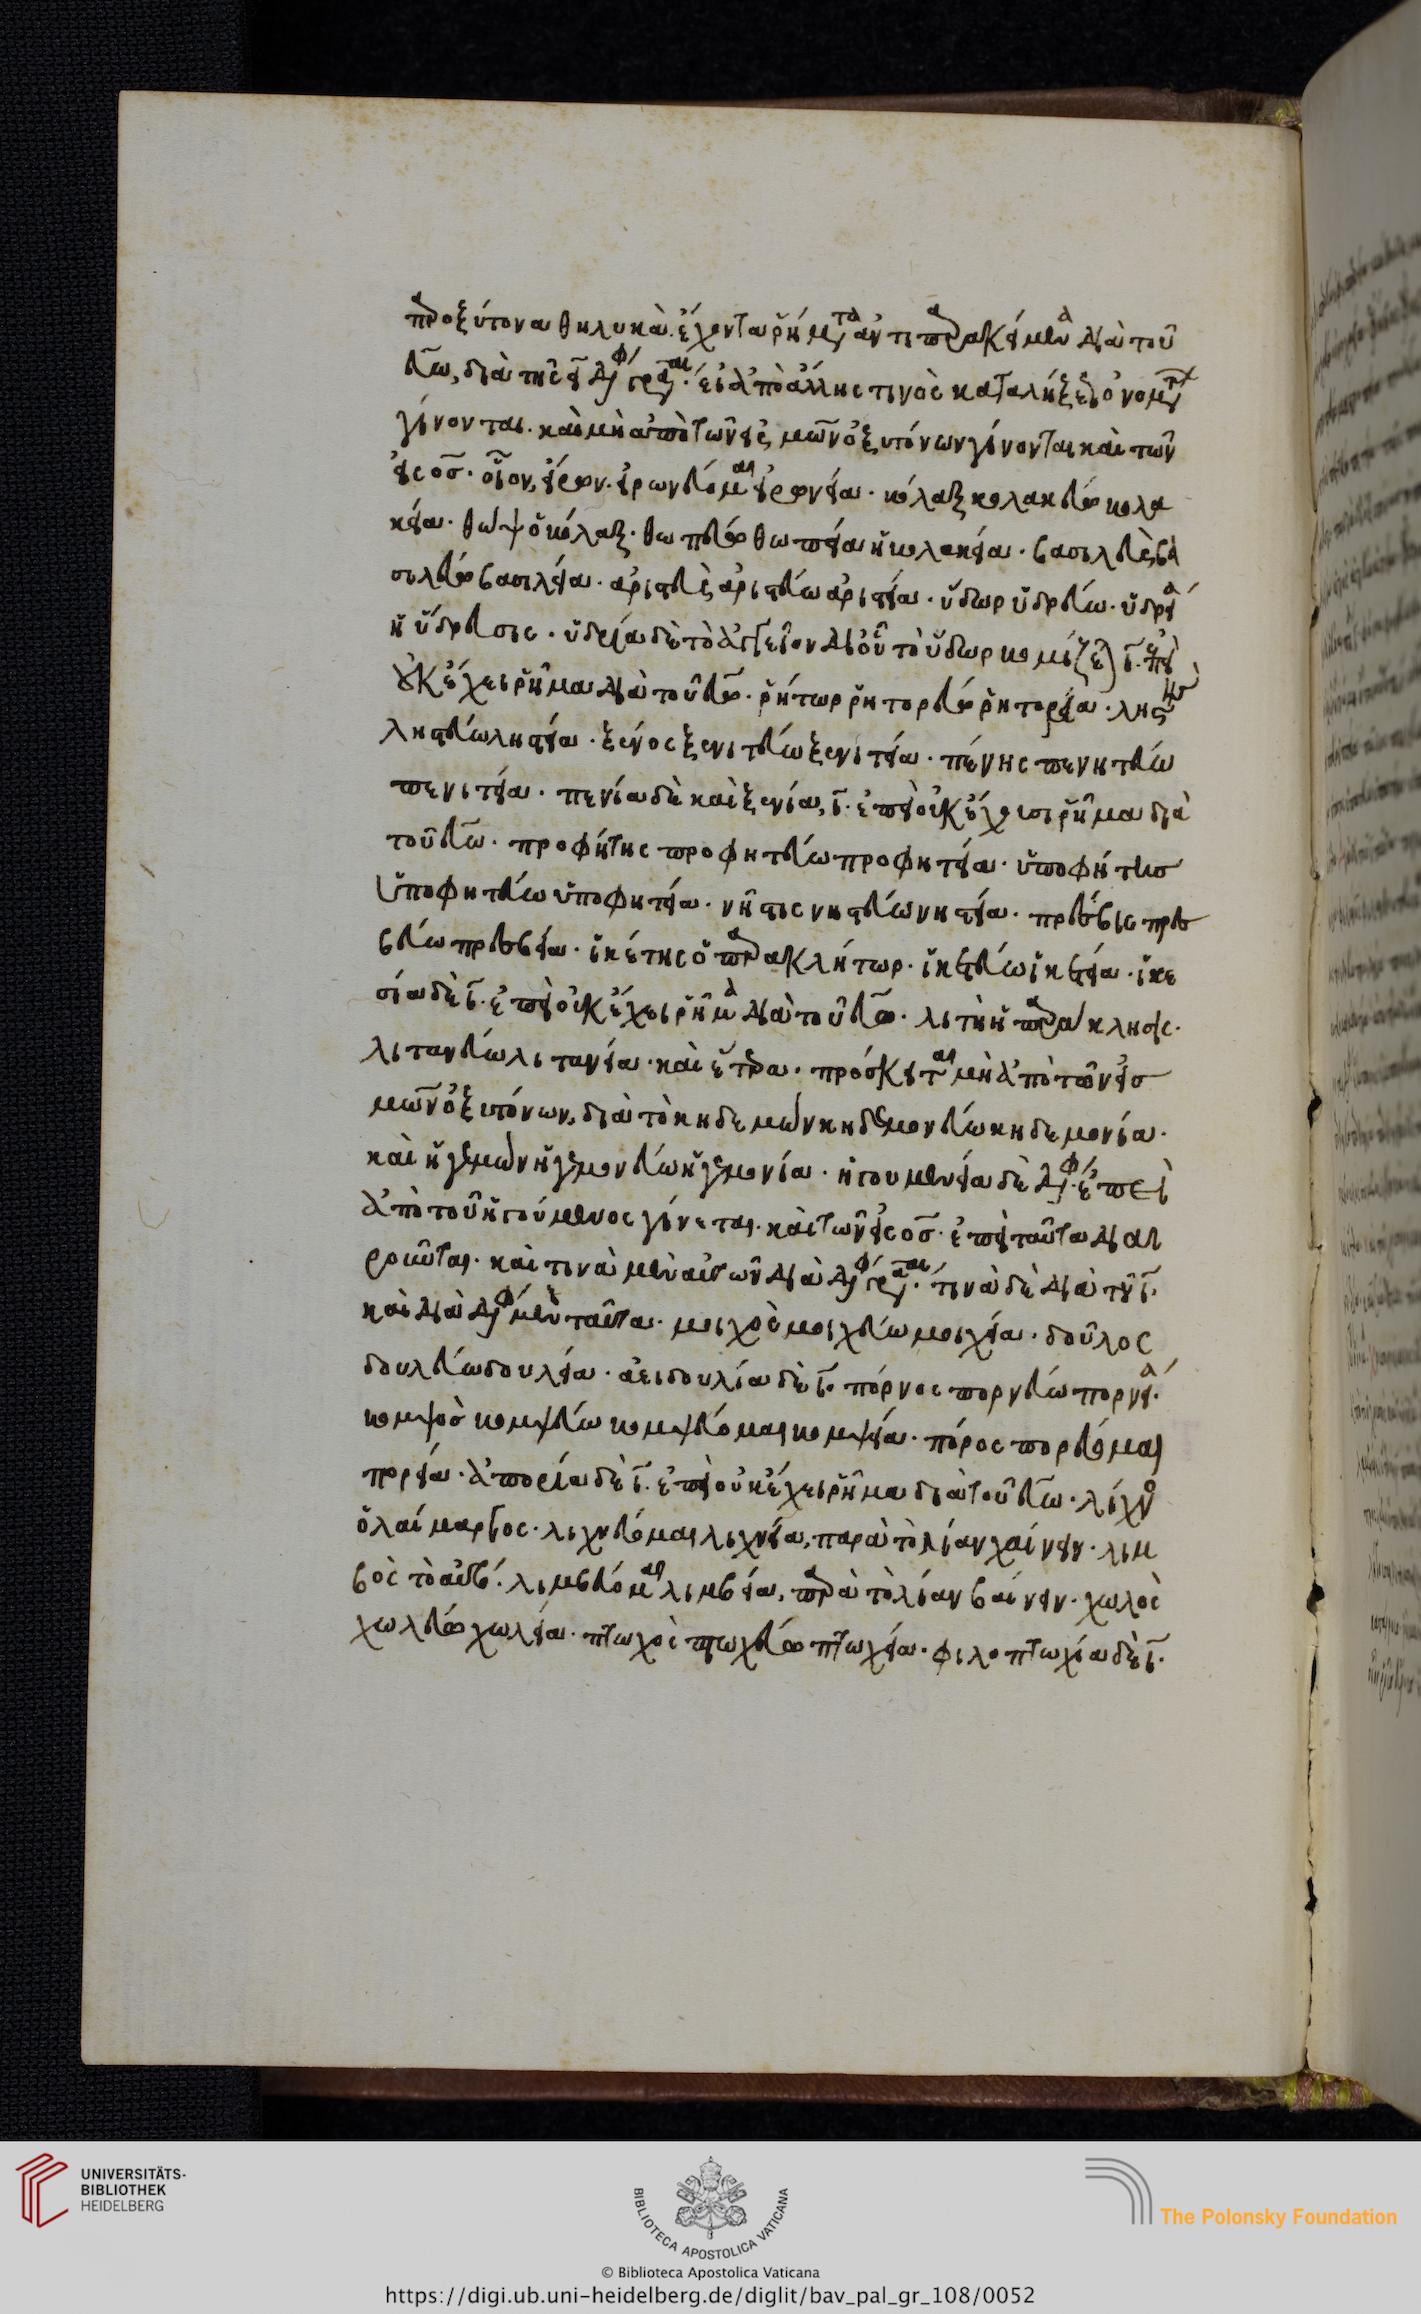 παροξύτονα θηλυκὰ ἔχοντα ῥήματα ἀντιπαρακείμενα διὰ τοῦ
εύω, διὰ τῆς ει διφ γρα. εἰ ἀπὸ ἄλλης τινὸς καταλήξεως ὀνομα
γίνονται. καὶ μὴ ἀπὸ τῶν εἰς μων ὀξυτόνων γίνονται καὶ τῶν
εἰς ος. οἷον, εἴρων. εἰρωνεύομαι εἰρωνεία. κόλαξ κολακεύω κολα
κεία. θὼψ ὁ κόλαξ. θωπεύω θωπεία ἡ κολακεία. βασιλεὺς βα
σιλεύω βασιλεία. ἀριστεὺς ἀριστεύω ἀριστεία. ὕδωρ ὑδρεύω. ὑδρεία
ἡ ὕδρευσις. ὑδρία δὲ τὸ ἀγγεῖον δι οὗ τὸ ὕδωρ κομίζει ι. ἐπεὶ
οὐκ ἔχει ῥῆμα διὰ τοῦ εύω. ῥήτωρ ῥητορεύω ῥητορεία. ληστὴς
ληστεύω ληστεία. ξένος ξενιτεύω ξενιτεία. πένης πενητεύω
πενιτεία. πενία δὲ καὶ ξενία, ι. ἐπεὶ οὐκ ἔχουσι ῥῆμα διὰ
τοῦ εύω. προφήτης προφητεύω προφητεία. ὑποφήτης
ὑποφητεύω ὑποφητεία. νῆστις νηστεύω νηστεία. πρέσβις πρεσ
βεύω πρεσβεία. ἱκέτης ὁ παρακλήτωρ. ἱκετεύω ἱκετεία. ἱκε
σία δὲ ι. ἐπεὶ οὐκ ἔχει ῥῆμα διὰ τοῦ εύω. λιτὴ ἡ παράκλησις.
λιτανεύω λιτανεία. καὶ ἕτερα. πρόσκειται μὴ ἀπὸ τῶν εἰς
μων ὀξυτόνων, διὰ τὸ κηδεμὼν κηδεμονεύω κηδεμονία.
καὶ ἡγεμὼν ἡγεμονεύω ἡγεμονία. ἡγουμενεία δὲ διφ. ἐπεὶ
ἀπὸ τοῦ ἡγούμενος γίνεται. καὶ τῶν εἰς ος. ἐπεὶ ταῦτα διαι
ροῦνται. καί τινα μὲν αὐτῶν διὰ διφ γρα. τινὰ δὲ διὰ τοῦ ι.
καὶ διὰ διφ μὲν ταῦτα. μοιχὸς μοιχεύω μοιχεία. δοῦλος
δουλεύω δουλεία. ἀειδουλία δὲ ι. πόρνος πορνεύω πορνεία.
κομψὸς κομψεύω κομψεύομαι κομψεία. πόρος πορεύομαι
πορεία. ἀπορία δὲ ι. ἐπεὶ οὐκ ἔχει ῥῆμα διὰ τοῦ εύω. λίχνος
ὁ λαίμαργος. λιχνεύομαι λιχνεία, παρὰ τὸ λίαν χαίνειν. λιμ
βὸς τὸ αὐτό. λιμβεύομαι λιμβεία, παρὰ τὸ λίαν βαίνειν. χωλὸς
χωλεύω χωλεία. πτωχὸς πτωχεύω πτωχεία. φιλοπτωχία δὲ ι.
UNIVERSITÄTS-
BIBLIOTHEK
HEIDELBERG
BIBLIOTECA APOSTOLICA VATICANA
The Polonsky Foundation
© Biblioteca Apostolica Vaticana
https://digi.ub.uni-heidelberg.de/diglit/bav_pal_gr_108/0052